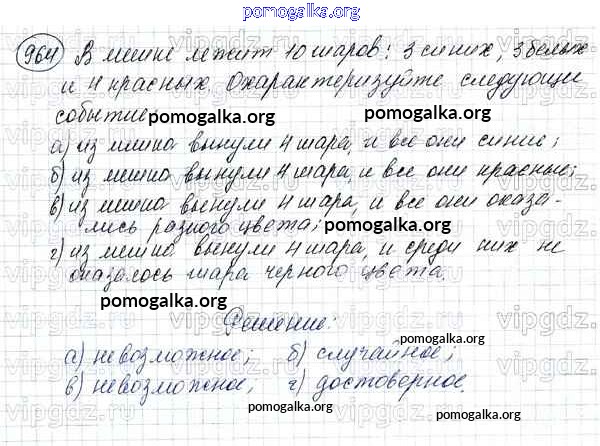 pomogalka.org
964 В мешке лежит 10 шаров: 3 синих, 3 белых
и 4 красных. Охарактеризуйте следующие
событие:
pomogalka.org pomogalka.org
а) из мешка вынули 4 шара, и все они синие;
б) из мешка вынули 4 шара, и все они красные;
в) из мешка вынули 4 шара, и все они оказа-
лись разного цвета;
pomogalka.org
г) из мешка вынули 4 шара, и среди них не
оказалось шара черного цвета.
pomogalka.org
Решение:
pomogalka.org
а) невозможное; б) случайное;
в) невозможное; г) достоверное.
pomogalka.org
pomogalka.org
vipgdz.ru vipgdz.ru vipgdz.ru